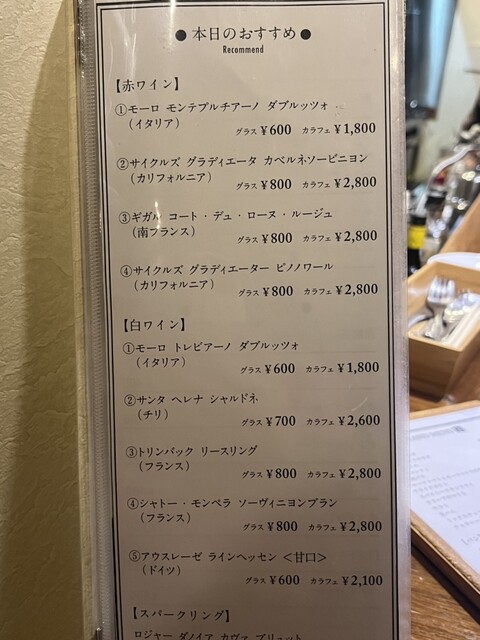 ●本日のおすすめ●
Recommend
【赤ワイン】
①モーロ モンテプルチアーノ ダブルッツォ
（イタリア）
グラス ¥600 カラフェ ¥1,800
②サイクルズ グラディエータ カベルネソービニヨン
（カリフォルニア）
グラス ¥800 カラフェ ¥2,800
③ギガル コート・デュ・ローヌ・ルージュ
（南フランス）
グラス ¥800 カラフェ ¥2,800
④サイクルズ グラディエーター ピノノワール
（カリフォルニア）
グラス ¥800 カラフェ ¥2,800
【白ワイン】
①モーロ トレビアーノ ダブルッツォ
（イタリア）
グラス ¥600 カラフェ ¥1,800
②サンタ ヘレナ シャルドネ
（チリ）
グラス ¥700 カラフェ ¥2,600
③トリンバック リースリング
（フランス）
グラス ¥800 カラフェ ¥2,800
④シャトー・モンペラ ソーヴィニヨンブラン
（フランス）
グラス ¥800 カラフェ ¥2,800
⑤アウスレーゼ ラインヘッセン ＜甘口＞
（ドイツ）
グラス ¥600 カラフェ ¥2,100
【スパークリング】
ロジャー ダノイア カヴァ ブリュット